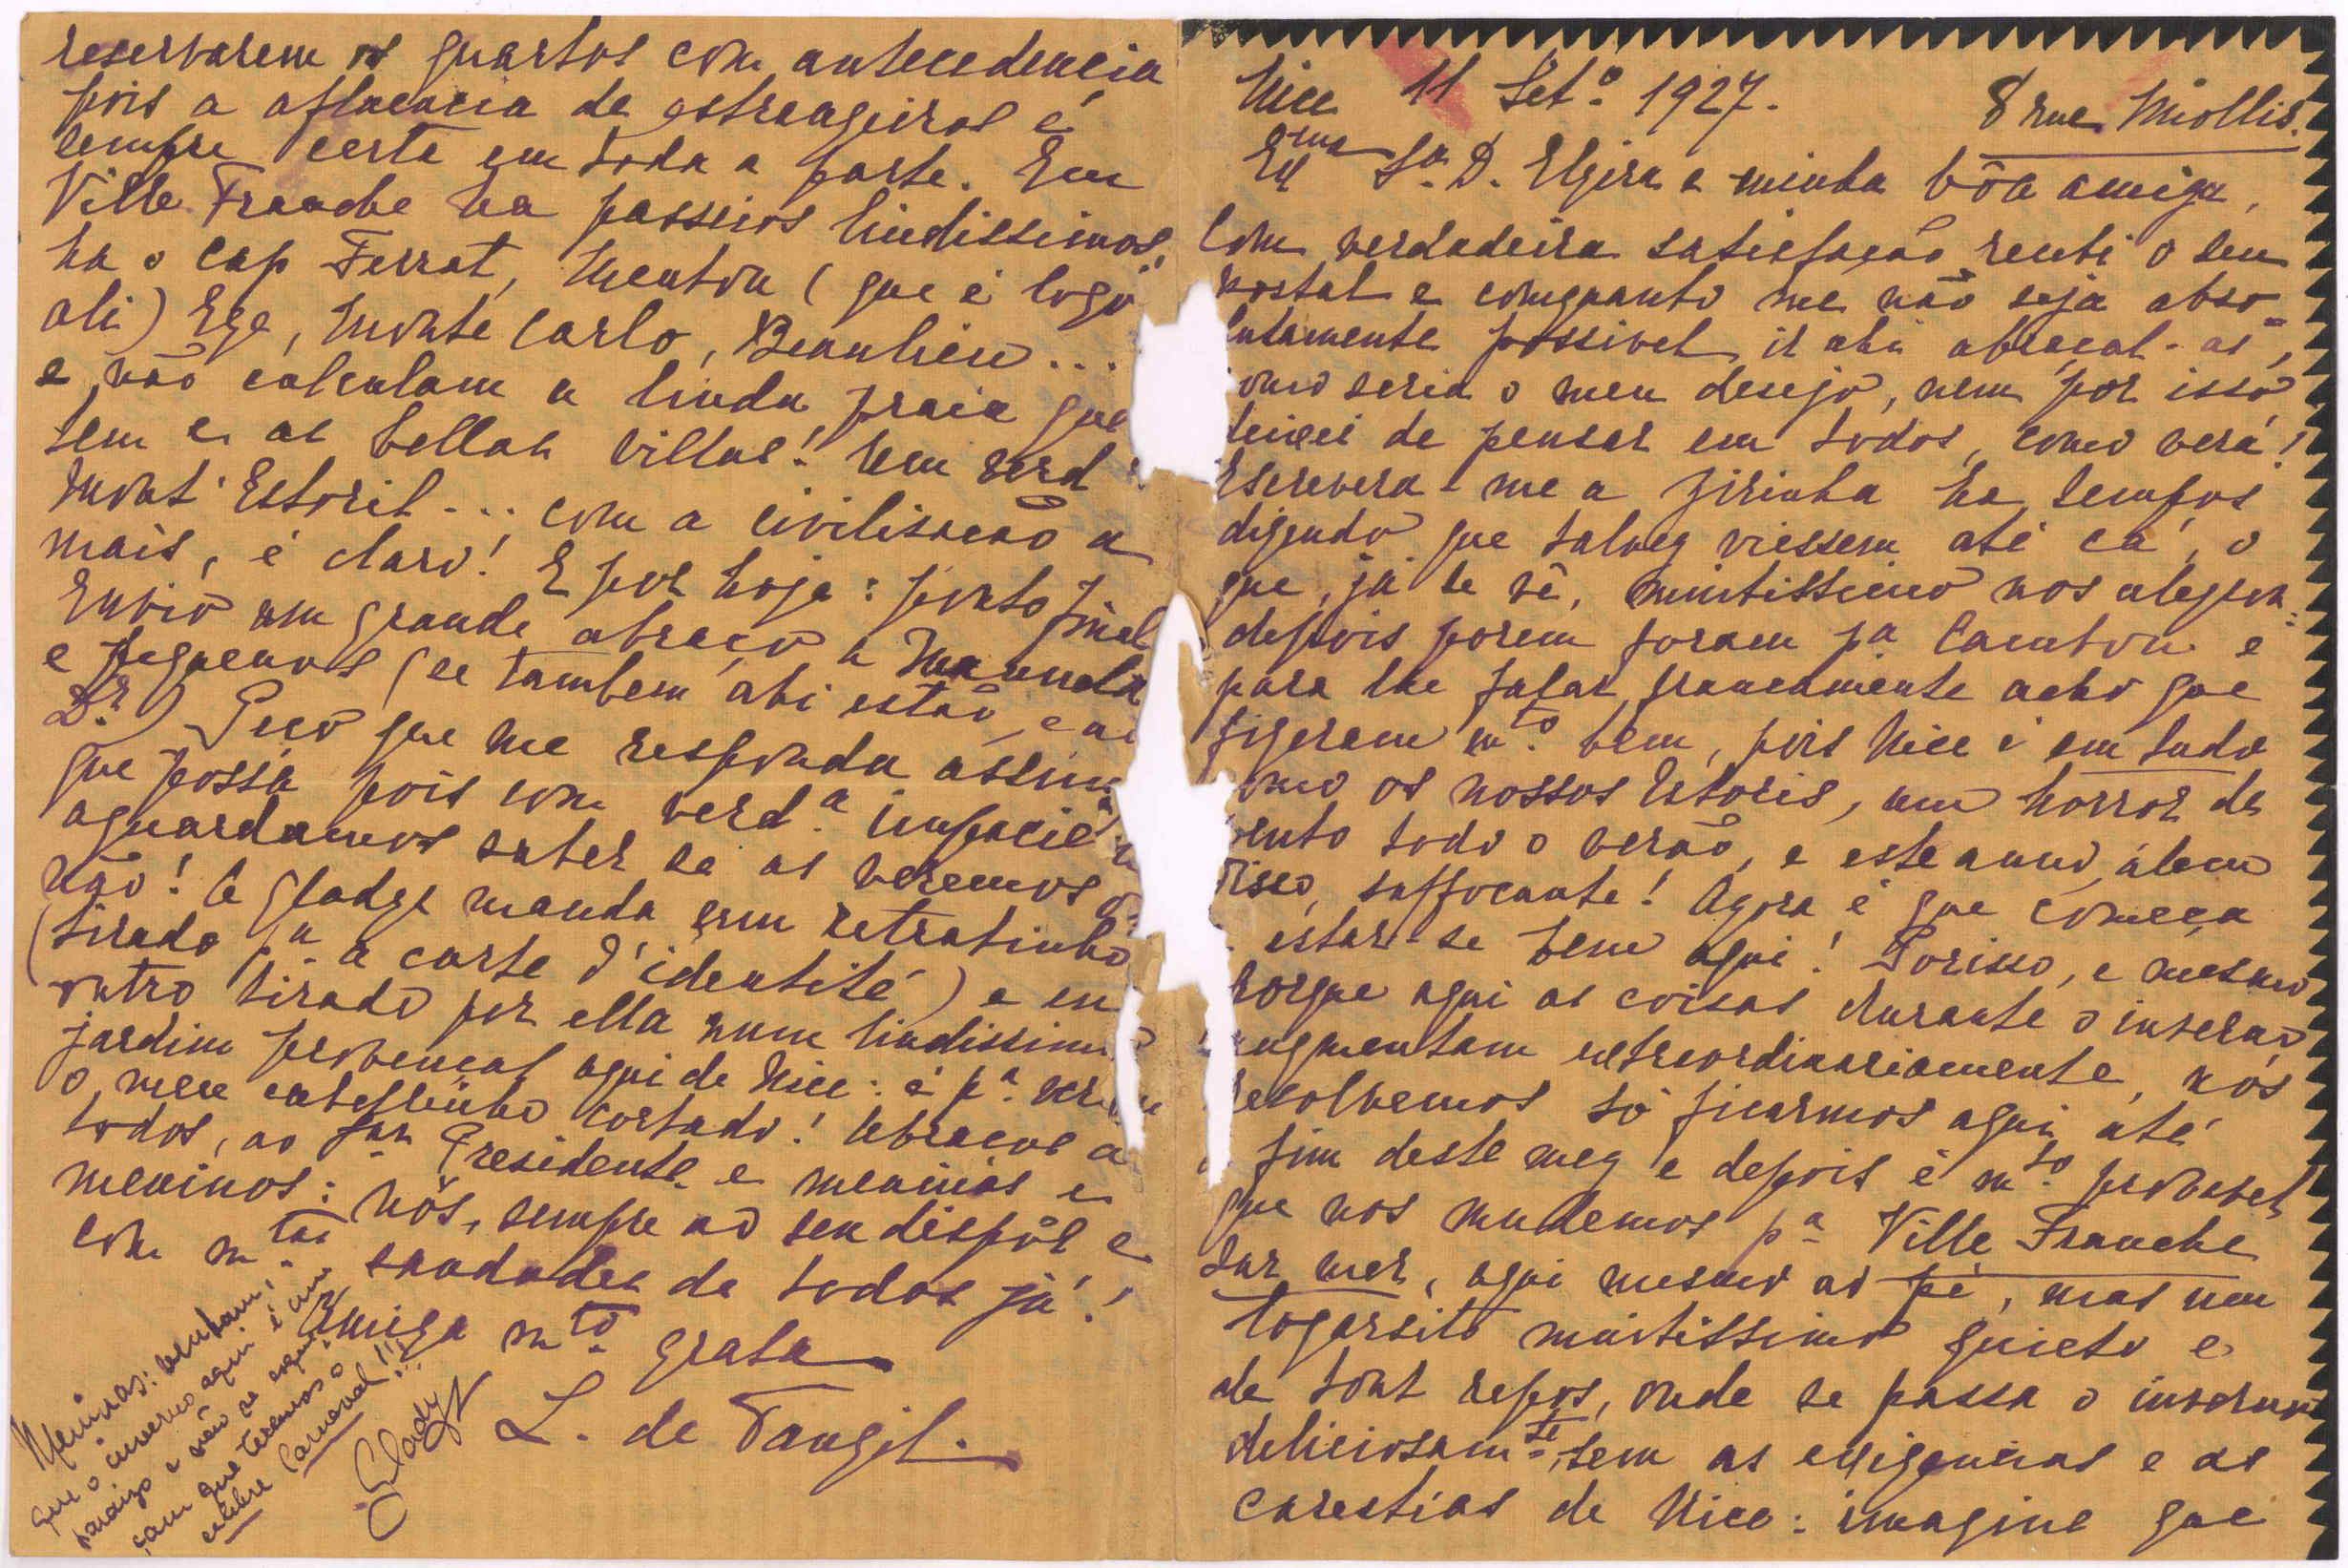 Nice 11 Set.º 1927.
8 rue Miollis.
Exma Sra. D. Elzira e minha bôa amiga,
Com verdadeira satisfação recebi o seu
postal e comquanto me não seja abso-
lutamente possivel ir ahi abraçal-as,
como seria o meu desejo, nem por isso
deixei de pensar em todos, como verá!
Escrevera-me a Zirinha ha tempos
dizendo que talvez viessem até cá, o
que, já se vê, muitissimo nos alegrou:
depois porem foram pª e
para lhe falar francamente acho que
fizeram m.to bem, pois Nice é em tudo
como os nossos Estoris, um horror de
vento todo o verão, e este anno, álem
disso, suffocante! Agora é que começa
a estar-se bem aqui! Porisso, e mesmo
porque aqui as coisas durante o inverno
augmentam extraordinariamente, nós
resolvemos só ficarmos aqui até
o fim deste mez e depois é m.to provavel
que nos mudemos pª Ville Franche
sur mer, aqui mesmo ao pé, mas um
logarsito muitissimo quieto e
de tout repos, onde se passa o inverno
deliciosam.te, sem as exigencias e as
carestias de Nice: imagine que
reservarem os quartos com antecedencia
pois a afluencia de estrangeiros é
sempre certa em toda a parte. Em
Ville Franche ha passeios lindissimos,
ha o Cap Ferrat, Menton (que é logo
ali) Eze, Monte Carlo, Beaulieu...
e não calculam a linda praia que
tem e as bellas villas! Um verd
Mont' Estoril... com a civilisação a
mais, é claro! E por hoje: ponto final
Envio um grande abraço a
e pequenos (se tambem ahi estão, e ao
D.r) Peço que me responda assim
que possa pois com verd.ª impacie
aguardamos saber se as veremos ou
não! A Gladys manda um retratinho
(tirado pª a carte d'identité) e en
outro tirado por ella num lindissimo
jardim provençal aqui de Nice: é pª verem
o meu cabellinho cortado! Abraços a
todos, ao Snr. Presidente e meninas e
meninos: nós, sempre ao seu dispôr e
com m.tas saudades de todos já!
Amiga m.to grata
L. de Tangil.
Meninas: venham!
que o inverno aqui é um
paraizo e não se esque-
çam que teremos o
celebre Carnaval!!!
Gladys